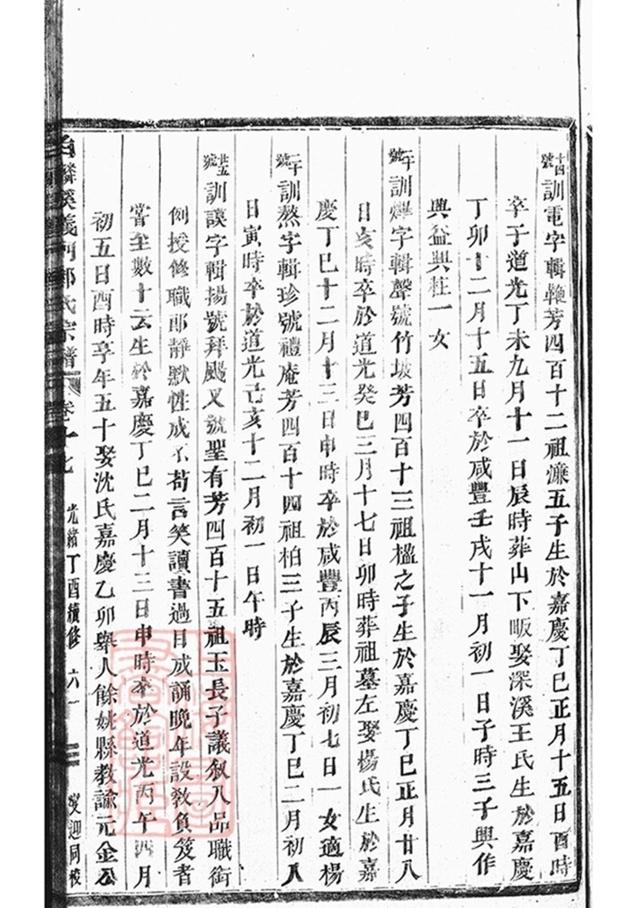 訓電字輯艶芳四百十二祖濂五子生於嘉慶丁巳正月十五日酉時
卒于道光丁未九月十一日辰時葬山下畈娶深溪王氏生於嘉慶
丁卯十二月十五日卒於咸豐壬戌十一月初一日子時三子興作
興益興柱一女
訓燁字輯聲號竹坡芳四百十三祖楹之子生於嘉慶丁巳正月廿八
日亥時卒於道光癸巳三月十七日卯時葬祖墓左娶楊氏生於嘉
慶丁巳十二月十三日申時卒於咸豐丙辰三月初七日一女適楊
訓熬字輯珍號禮庵芳四百十四祖柏三子生於嘉慶丁巳二月初八
日寅時卒於道光己亥十二月初一日午時
訓讓字輯揚號拜颺又號聖有芳四百十五祖玉長子議敘八品職銜
例授修職郎靜默性成不苟言笑讀書過目成誦晚年設教負笈者
嘗至數十云生於嘉慶丁巳二月十三日申時卒於道光丙午四月
初五日酉時享年五十娶沈氏嘉慶乙卯舉人餘姚縣教諭元金公
麟溪義門鄭氏宗譜 卷十七 光緒丁酉續修 六一